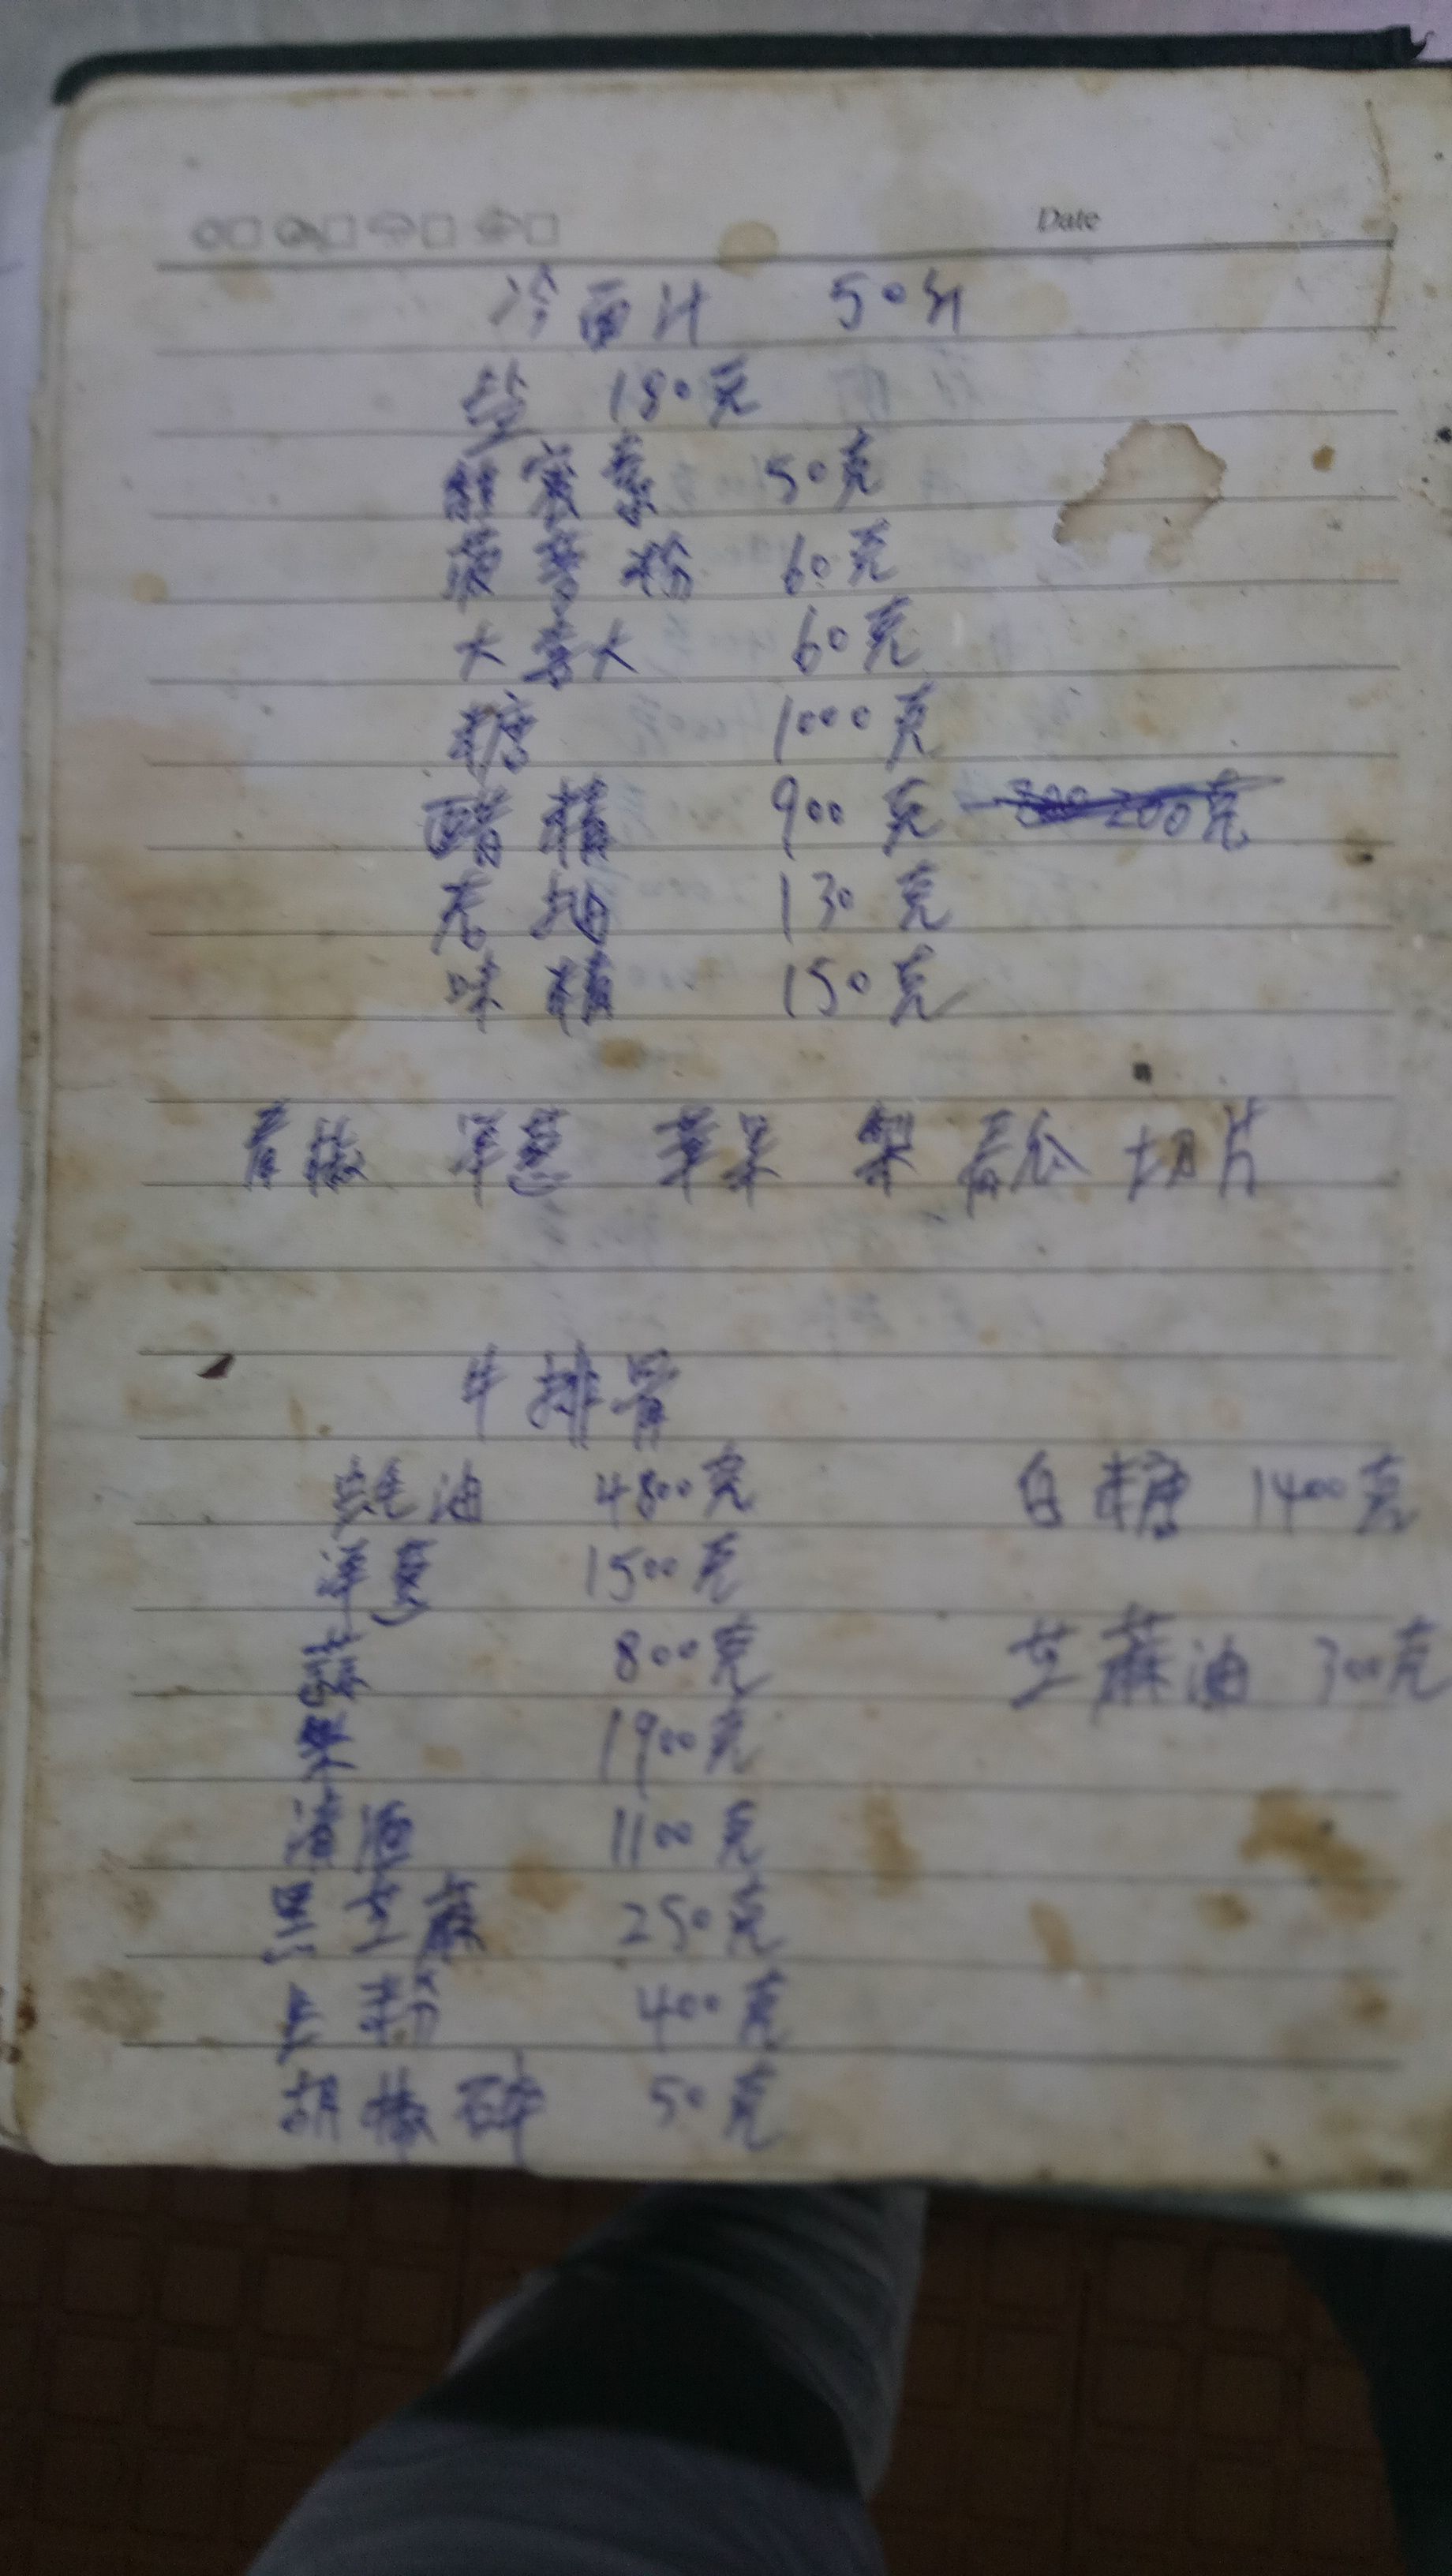 Date
冷面汁 50斤
盐 180克
甜蜜素 50克
菠萝粉 60克
大喜大 60克
糖 1000克
醋精 900克
老抽 130克
味精 150克
青椒 洋葱 苹果 梨 青瓜 切片
牛排骨
蚝油 4800克 白糖 1400克
洋葱 1500克
蒜 800克 芝蔴油 300克
梨 1900克
清酒 1100克
黑芝蔴 250克
粉 400克
胡椒碎 50克